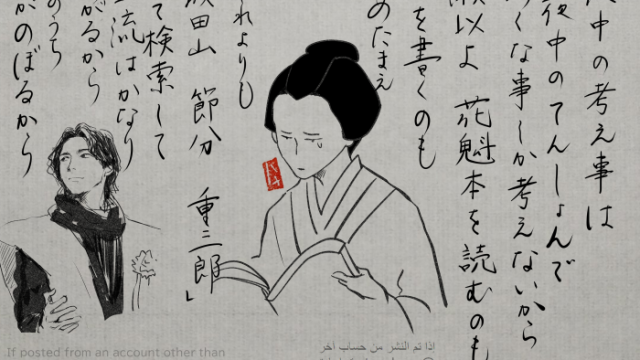 中の考え事は
夜中のてんしょんで
くな事しか考えないから
以よ 花魁本を読むのも
を書くのも
のたまえ
れよりも
成田山 節分 重三郎」
て検索して
流はかなり
がるから
のうち
がのぼるから
If posted from an account other than
اذا تم النشر من حساب آخر